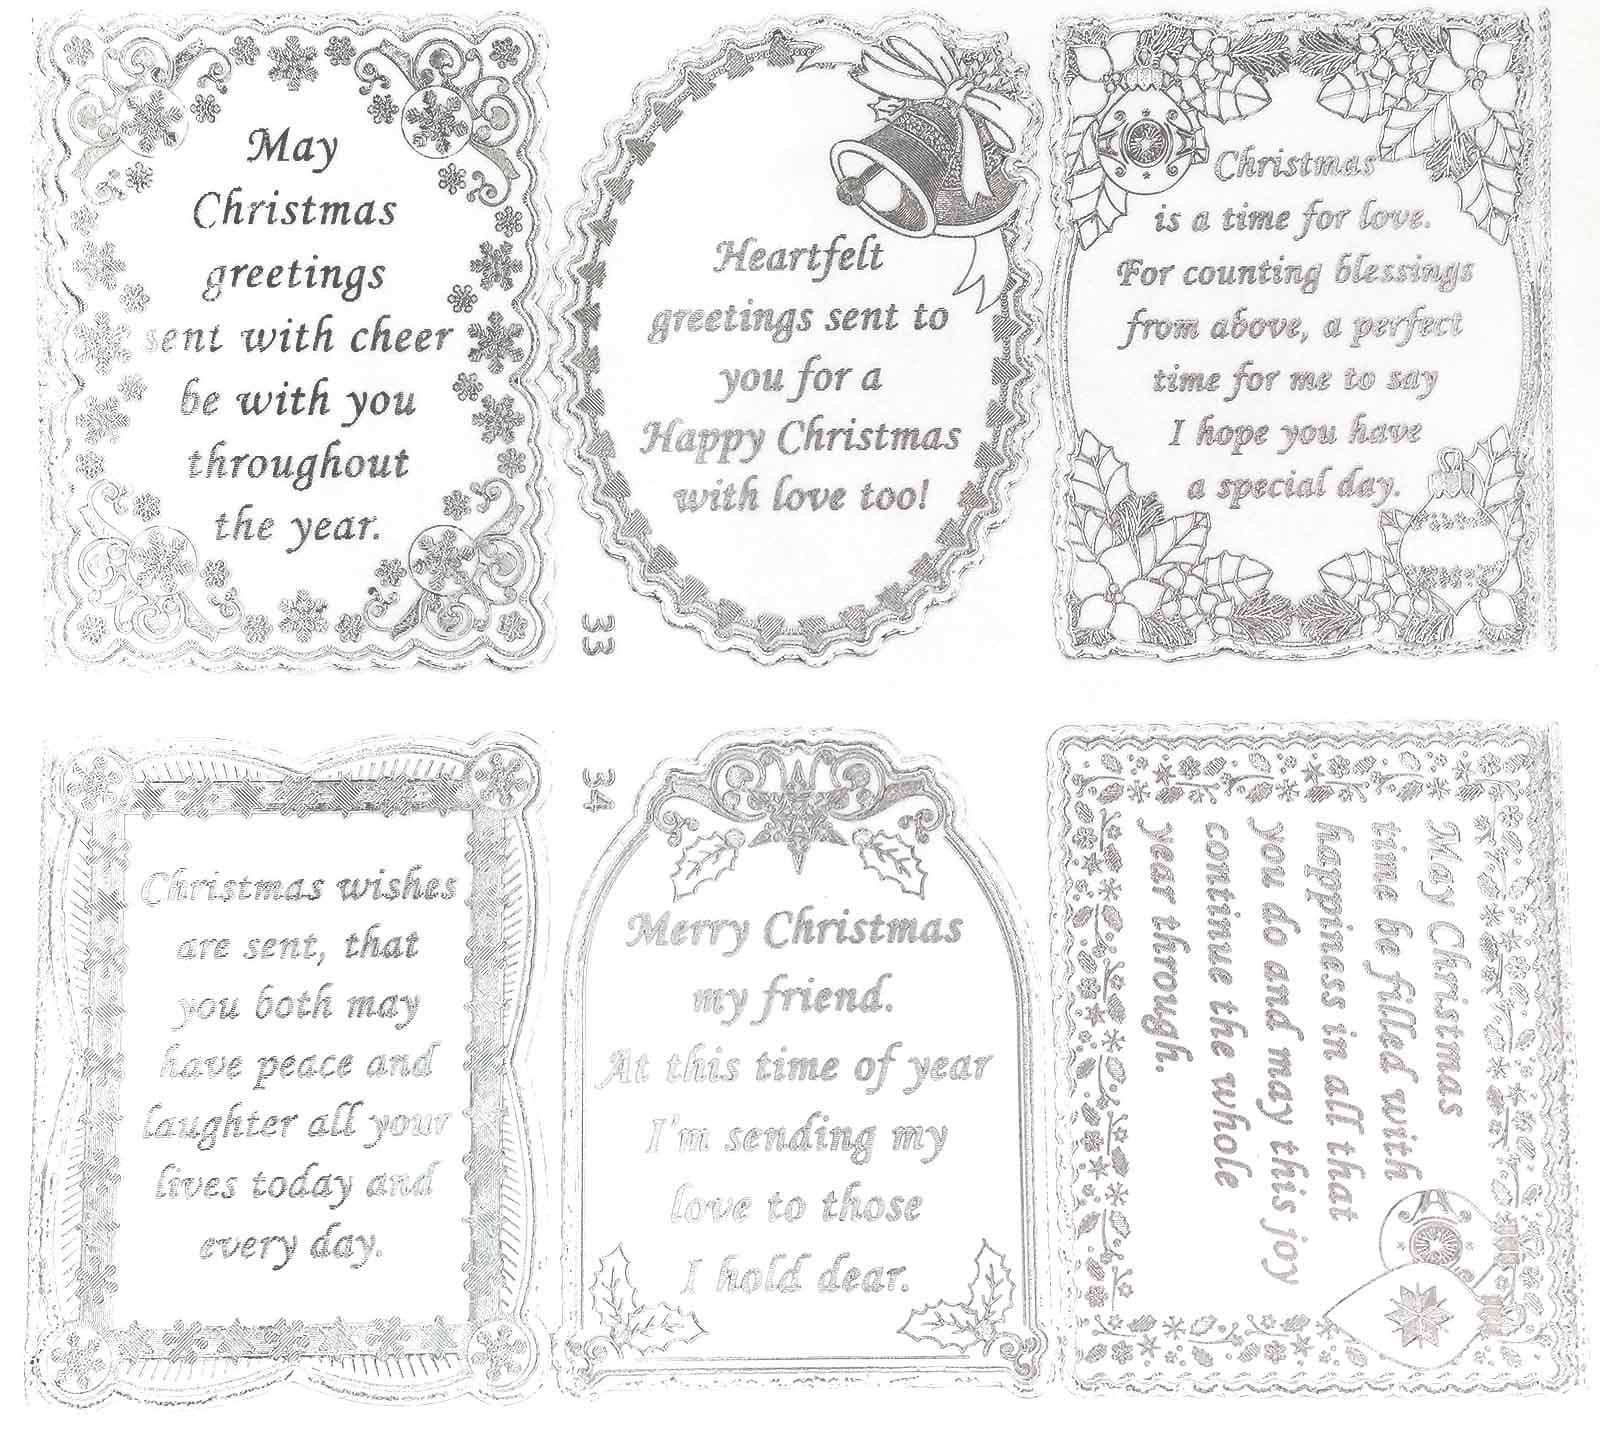 May
Christmas
greetings
sent with cheer
be with you
throughout
the year.
Heartfelt
greetings sent to
you for a
Happy Christmas
with love too!
Christmas
is a time for love.
For counting blessings
from above, a perfect
time for me to say
I hope you have
a special day.
33
34
Christmas wishes
are sent, that
you both may
have peace and
laughter all your
lives today and
every day.
Merry Christmas
my friend.
At this time of year
I'm sending my
love to those
I hold dear.
May Christmas
time be filled with
happiness in all that
you do and may this joy
continue the whole
year through.